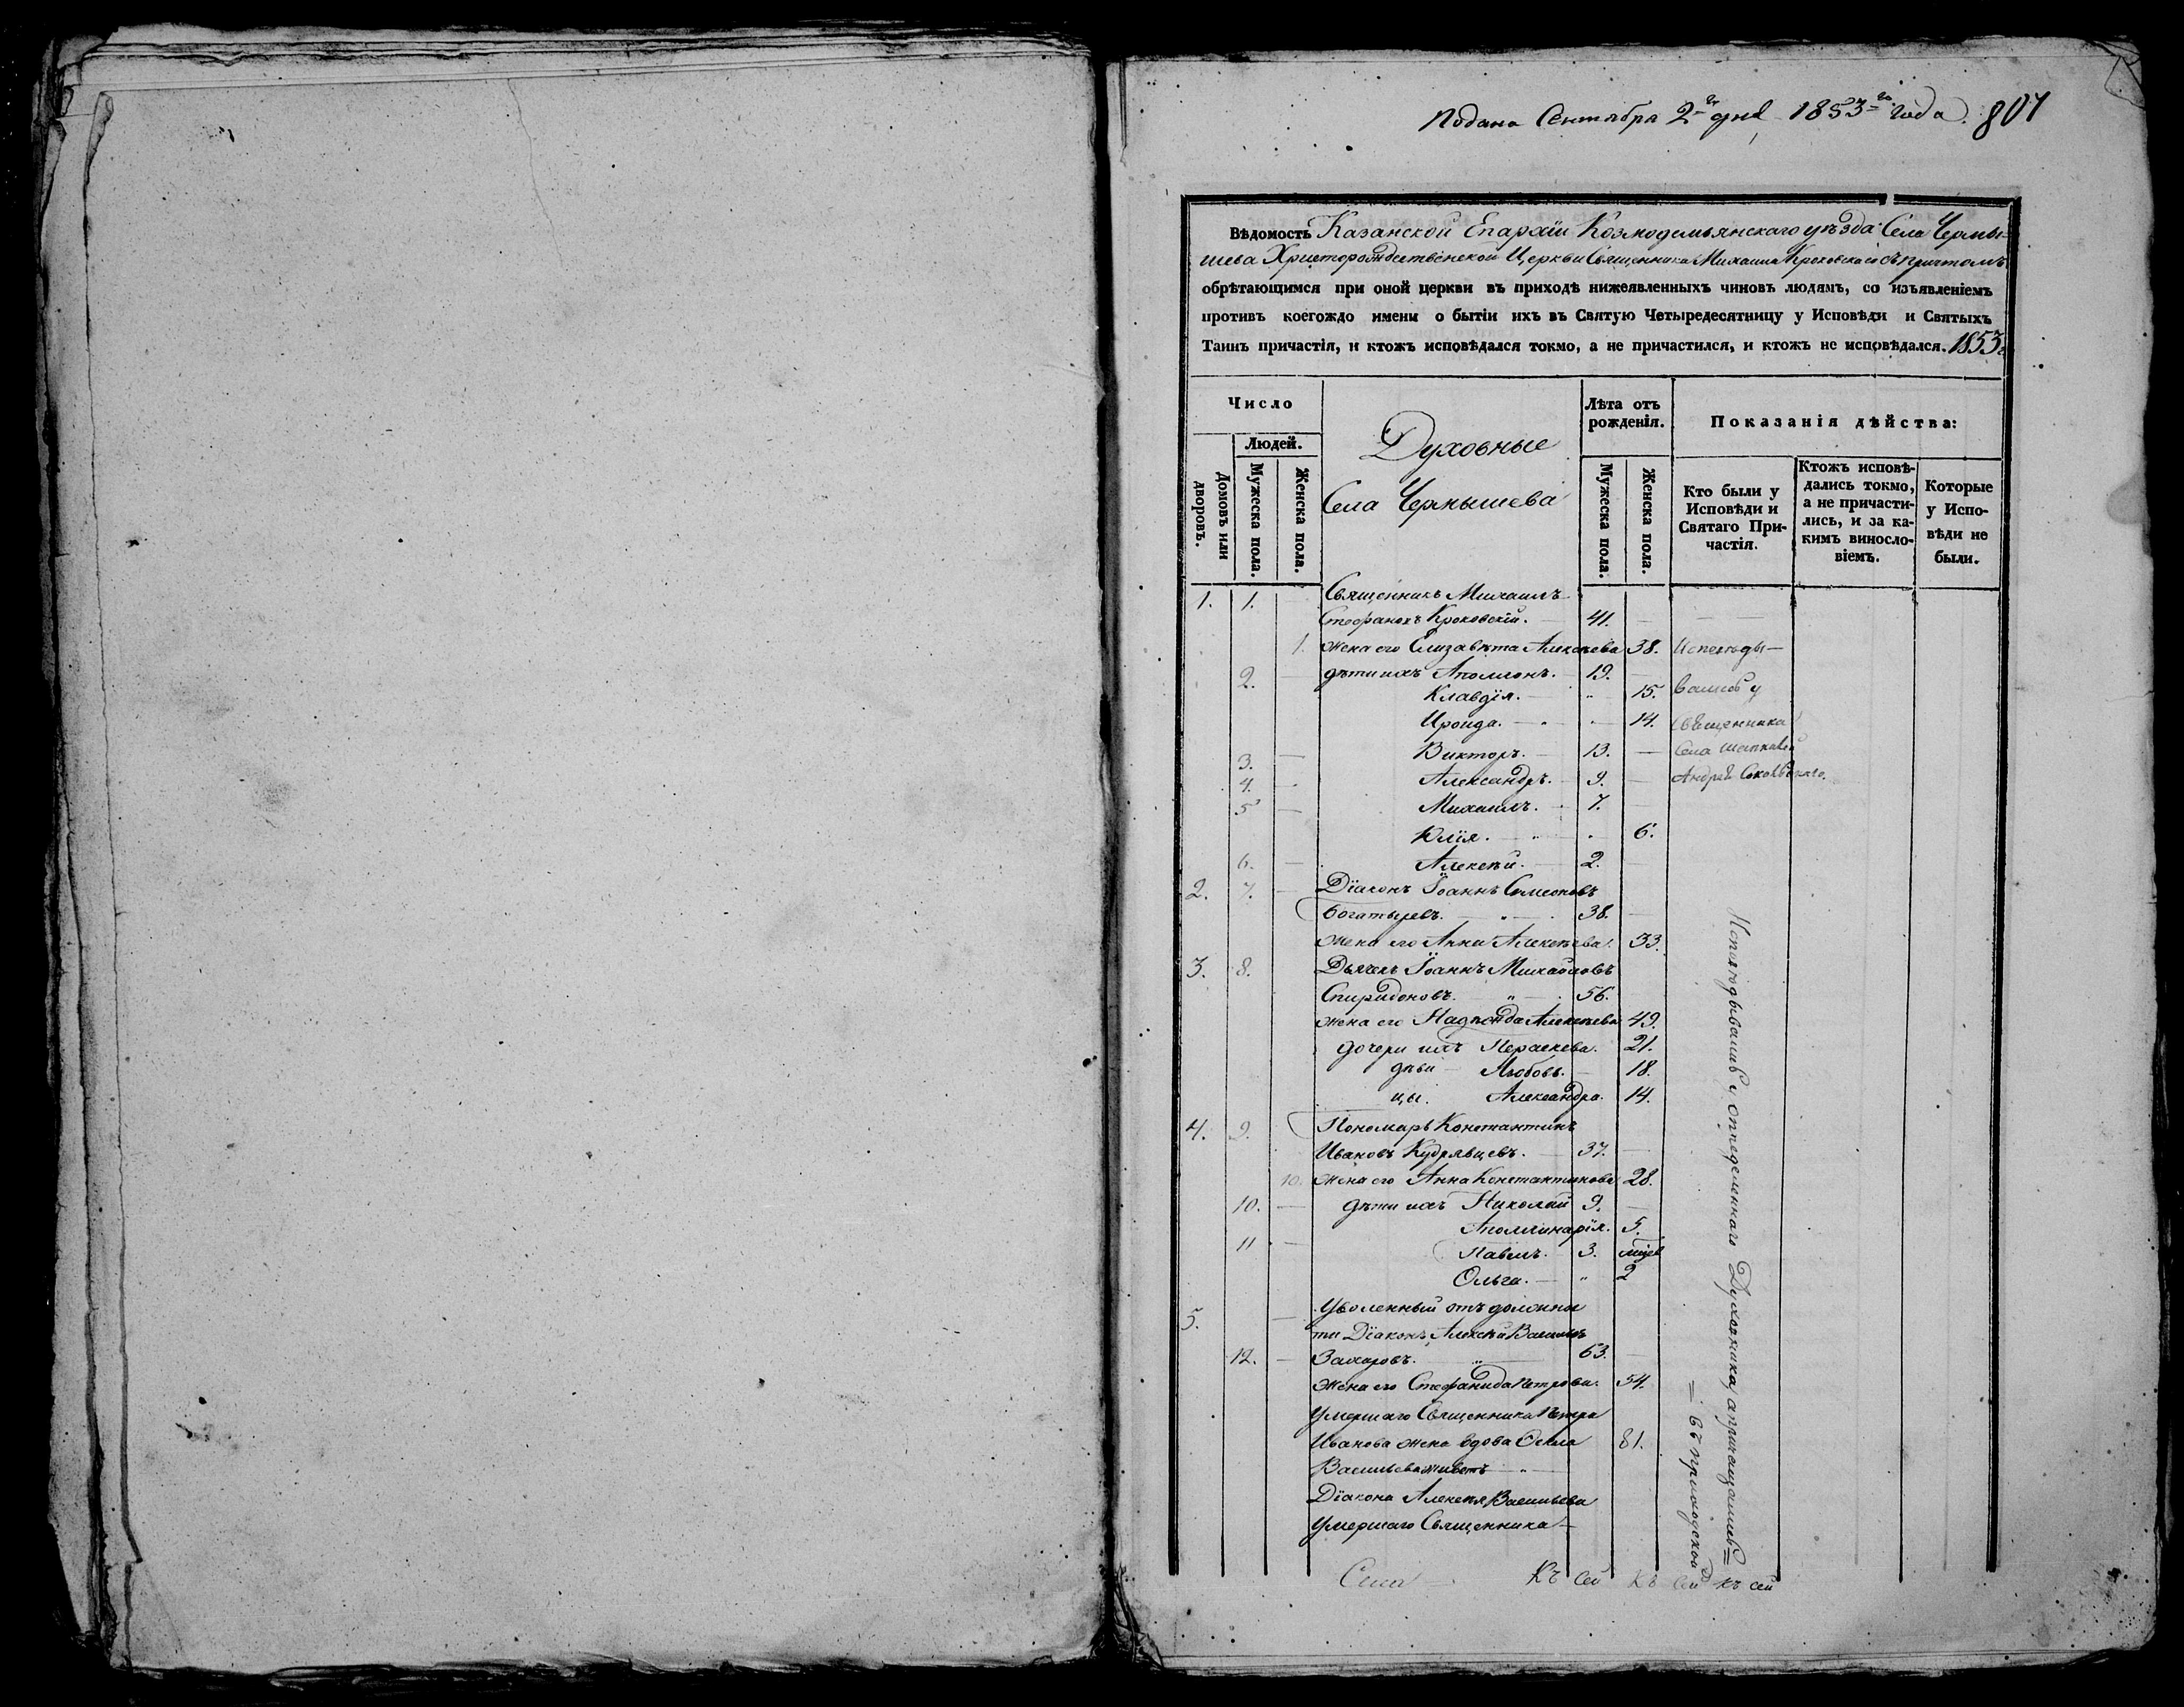 Подана Сентября 2го дня 1853го года. 807
Вѣдомость Казанской Епархіи Козмодемьянскаго уѣзда Села Черны-
шева Христорождественской Церкви Священника Михаила Кроковскаго съ причтомъ
обрѣтающимся при оной церкви въ приходѣ нижеявленныхъ чиновъ людямъ, со изъявленіемъ
противъ коегождо имени о бытіи ихъ въ Святую Четыредесятницу у Исповѣди и Святыхъ
Таинъ причастія, и ктожъ исповѣдался токмо, а не причастился, и ктожъ не исповѣдался. 1853 г.
Число
Людей.
Домовъ или дворовъ.
Мужеска пола.
Женска пола.
Духовные
Села Чернышева
Лѣта отъ рожденія.
Мужеска пола.
Женска пола.
Показанія дѣйства:
Кто были у Исповѣди и Святаго Причастія.
Ктожъ исповѣ-
дались токмо,
а не причасти-
лись, и за ка-
кимъ винословіемъ.
Которые у Исповѣди не были.
1. 1. Священникъ Михаилъ
Стефановъ Кроковскій. 41.
1. жена его Елизавета Алексѣева 38. Исповѣды-
2. дѣти ихъ Аполлонъ. 19.
Клавдія. " 15. вались у
Ироида. 14. Священника
3. Викторъ. 13. Села
4. Александръ. 9. Андрея
5 Михаилъ. 7.
Юлія. 6.
6. Алексѣй. 2.
2. 7. Діаконъ Іоаннъ Симеоновъ
Богатыревъ. 38.
жена его Анна Алексѣева. 33.
3. 8. Дьячекъ Іоаннъ Михайловъ
Спиридоновъ. " 56.
жена его Надежда Алексѣева 49.
дочери ихъ Пераскева. 21.
дѣви Любовь. 18.
цы. Александра. 14.
4. 9. Пономарь Константинъ
Ивановъ Кудрявцевъ. 37.
10. жена его Анна Константинова 28.
10. дѣти ихъ Николай 9.
Аполлинарія. 5.
11 Павелъ. 3.
Ольга. " 2
5. Уволенный отъ должнос
ти Діаконъ Алексѣй Васильевъ
12. Захаровъ. " 63.
жена его Стефанида Петрова. 54.
Умершаго Священника Петра
Иванова жена вдова 81.
Васильева живетъ "
Діакона Алексѣя Васильева
Умершаго Священника
Исповѣдывались у опредѣленнаго Духовника, а причащались
въ приходской
Села Къ сей Къ сей къ сей